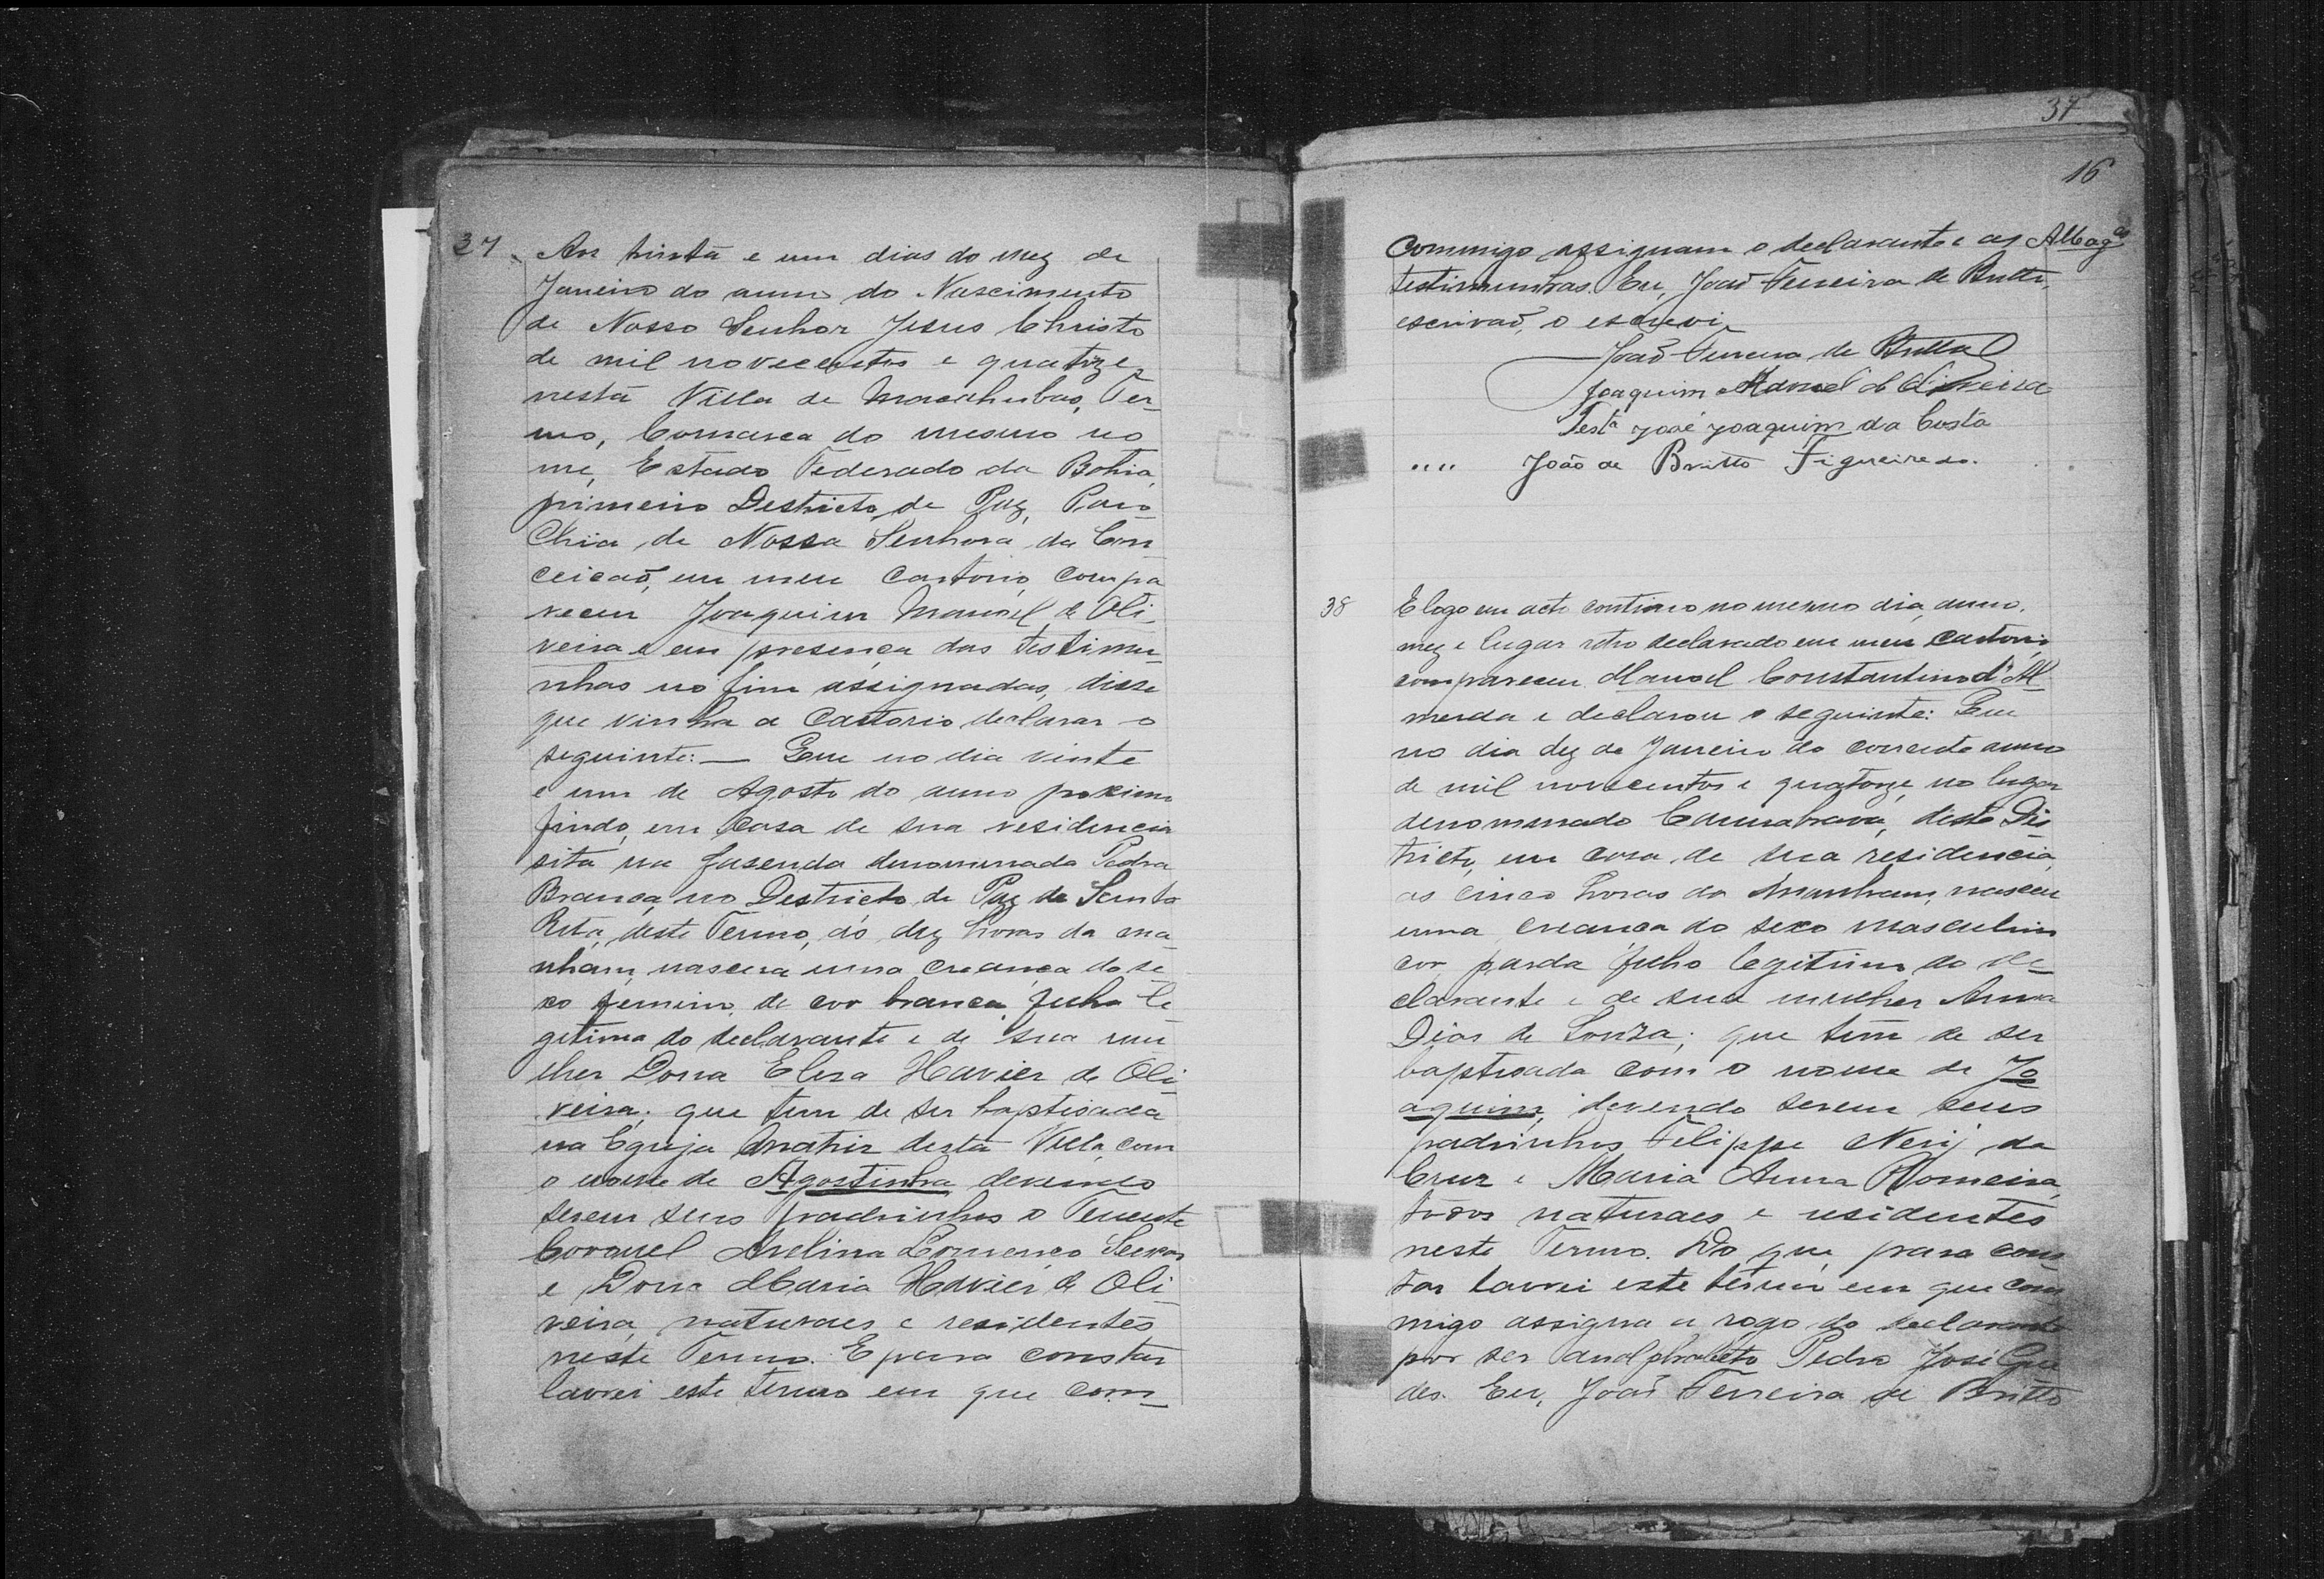 37 Aos trinta e um dias do mez de
Janeiro do anno do Nascimento
de Nosso Senhor Jesus Christo
de mil novecentos e quatorze,
nesta Villa de Macahubas, Ter-
mo, Comarca do mesmo no
me, Estado Federado da Bahia,
primeiro Destricto de Paz, Paro-
chia de Nossa Senhora da Con
ceicaõ, em meu Cartorio, compa
receu Joaquim Manoel de Oli-
veira e em presença das testimu-
nhas no fim assignadas, disse
que vinha a Cartorio declarar o
seguinte: — Que no dia vinte
e um de Agosto do anno proximo
findo, em casa de sua residencia
sita na fasenda denominada Pedra
Branca, no Destricto de Paz de Santa
Rita, deste Termo, ás dez horas da ma-
nham, nascera uma creança do se-
xo femino, de cor branca, filha le
gitima do declarante e de sua mu
lher Dona Elisa Xavier de Oli
veira; que tem de ser baptisada
na Egreja Matris desta Villa, com
o nome de Agostinha devendo
serem seus padrinhos o Tenente
Coronel Avelino Lourenço Seixas
e Dona Maria Xavier de Oli-
veira, naturaes e residentes
neste Termo. E para constar
lavrei este termo em que com-
37
16
Commigo assignam o declarante e as
testimunhas. Eu, Joaõ Ferreira de Britto,
escrivaõ, o escrevi
Joaõ Ferreira de Britto
Joaquim Manoel de Oliveira
Testa José Joaquim da Costa
" " João de Britto Figueiredo.
38 E logo em acto continuo no mesmo dia, anno,
mez e lugar retro declarado em meu Cartorio
compareceu Manoel Constantino d'Al
meida e declarou o seguinte: Que
no dia dez de Janeiro do corrente anno
de mil novecentos e quatorze, no lugar
denominado Cannabrava, deste Dis
tricto, em casa de sua residencia,
as cinco horas da Manham, nasceu
uma creança do sexo masculino
cor parda filho legitimo do de-
clarante e de sua mulher Anna
Dias de Souza; que tem de ser
baptisada com o nome de Jo
aquim, devendo serem seus
padrinhos Felippe Nerij da
Cruz e Maria Anna Romeira,
todos naturaes e residentes
neste Termo. Do que, para cons-
tar lavrei este termo em que com
migo assigna a rogo do declarante
por ser analphabeto Pedro José Gue
des. Eu, Joaõ Ferreira de Britto